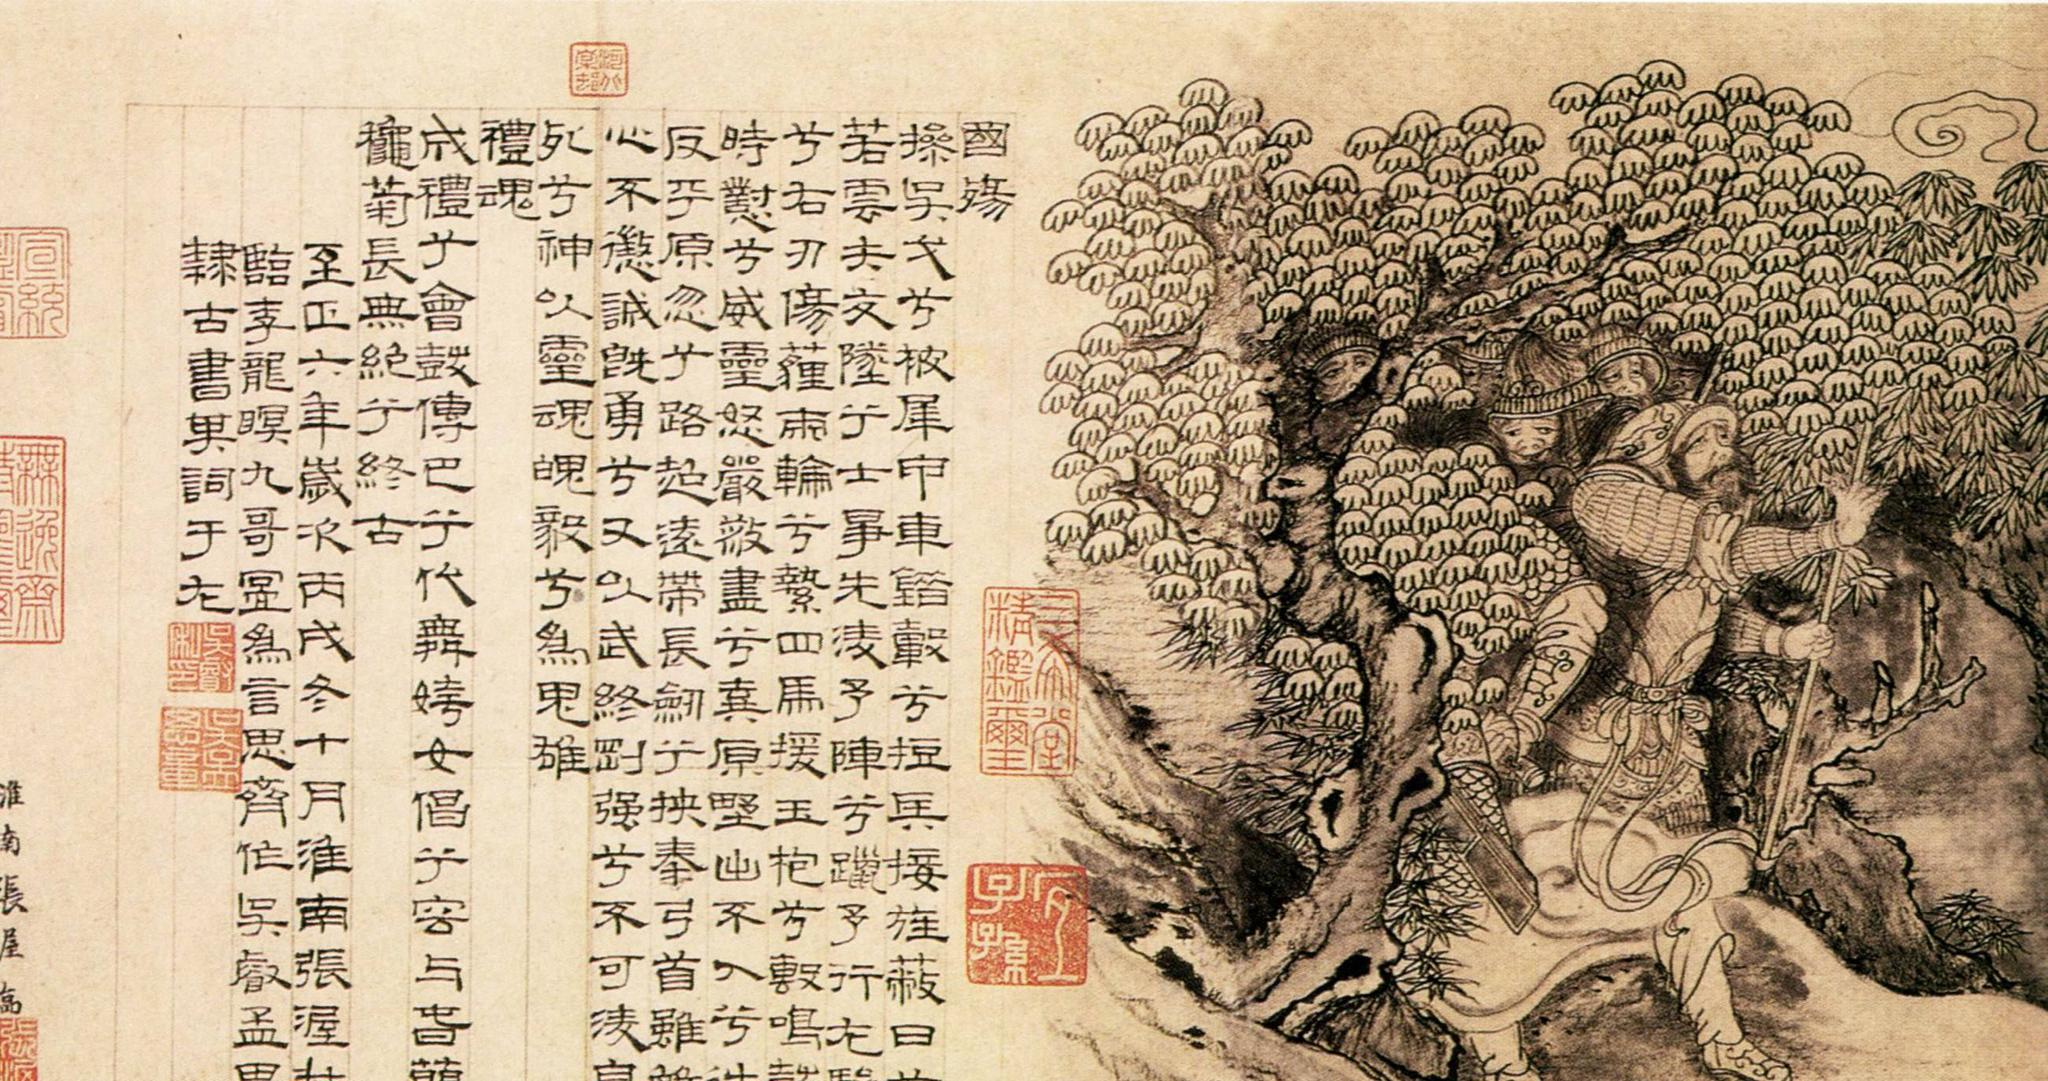 國殤
操吳戈兮被犀甲車錯轂兮短兵接旌蔽日兮
若雲矢交墜兮士爭先淩予陣兮躐予行左驂
兮右刃傷薶兩輪兮縶四馬援玉枹兮毄鳴鼓
時懟兮威靈怒嚴殺盡兮棄原壄出不入兮往
反平原忽兮路超遠帶長劒兮挾秦弓首雖離
心不懲誠旣勇兮又以武終剛强兮不可淩身
死兮神以靈魂魄毅兮為鬼雄
禮魂
成禮兮會鼓傳巴兮代舞姱女倡兮容与春蘭
龝菊長無絕兮終古
至正六年歲次丙戌冬十月淮南張渥
臨李龍眠九哥圖為言思齊作吳叡孟思
隸古書其詞于左
淮南張渥
三希堂精鑑璽
宜子孫